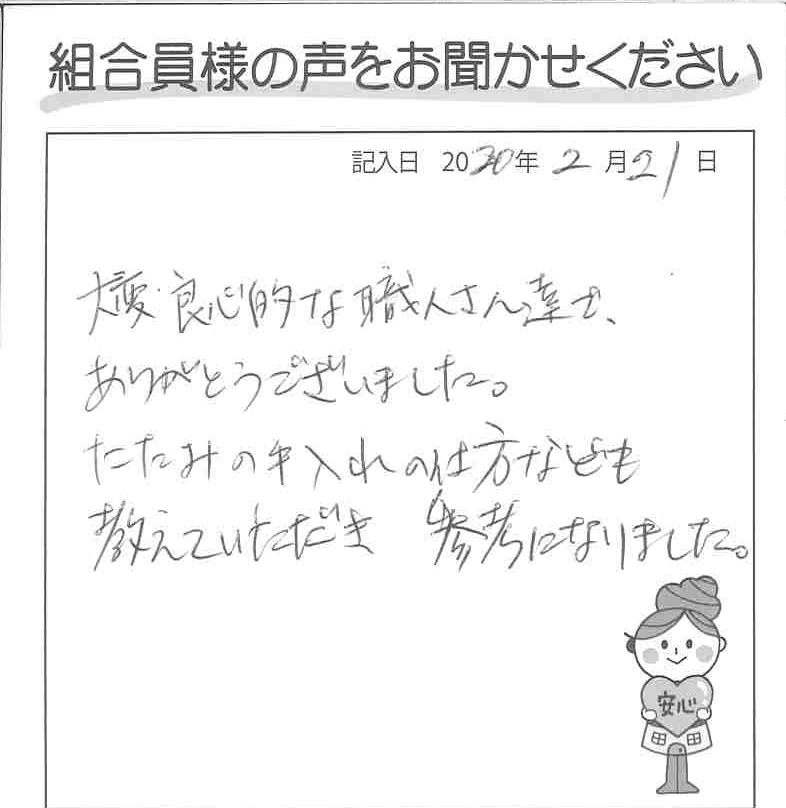 組合員様の声をお聞かせください
記入日 2020年 2月21日
大変良心的な職人さん達で、
ありがとうございました。
たたみの手入れの仕方なども
教えていただき 参考になりました。
安心